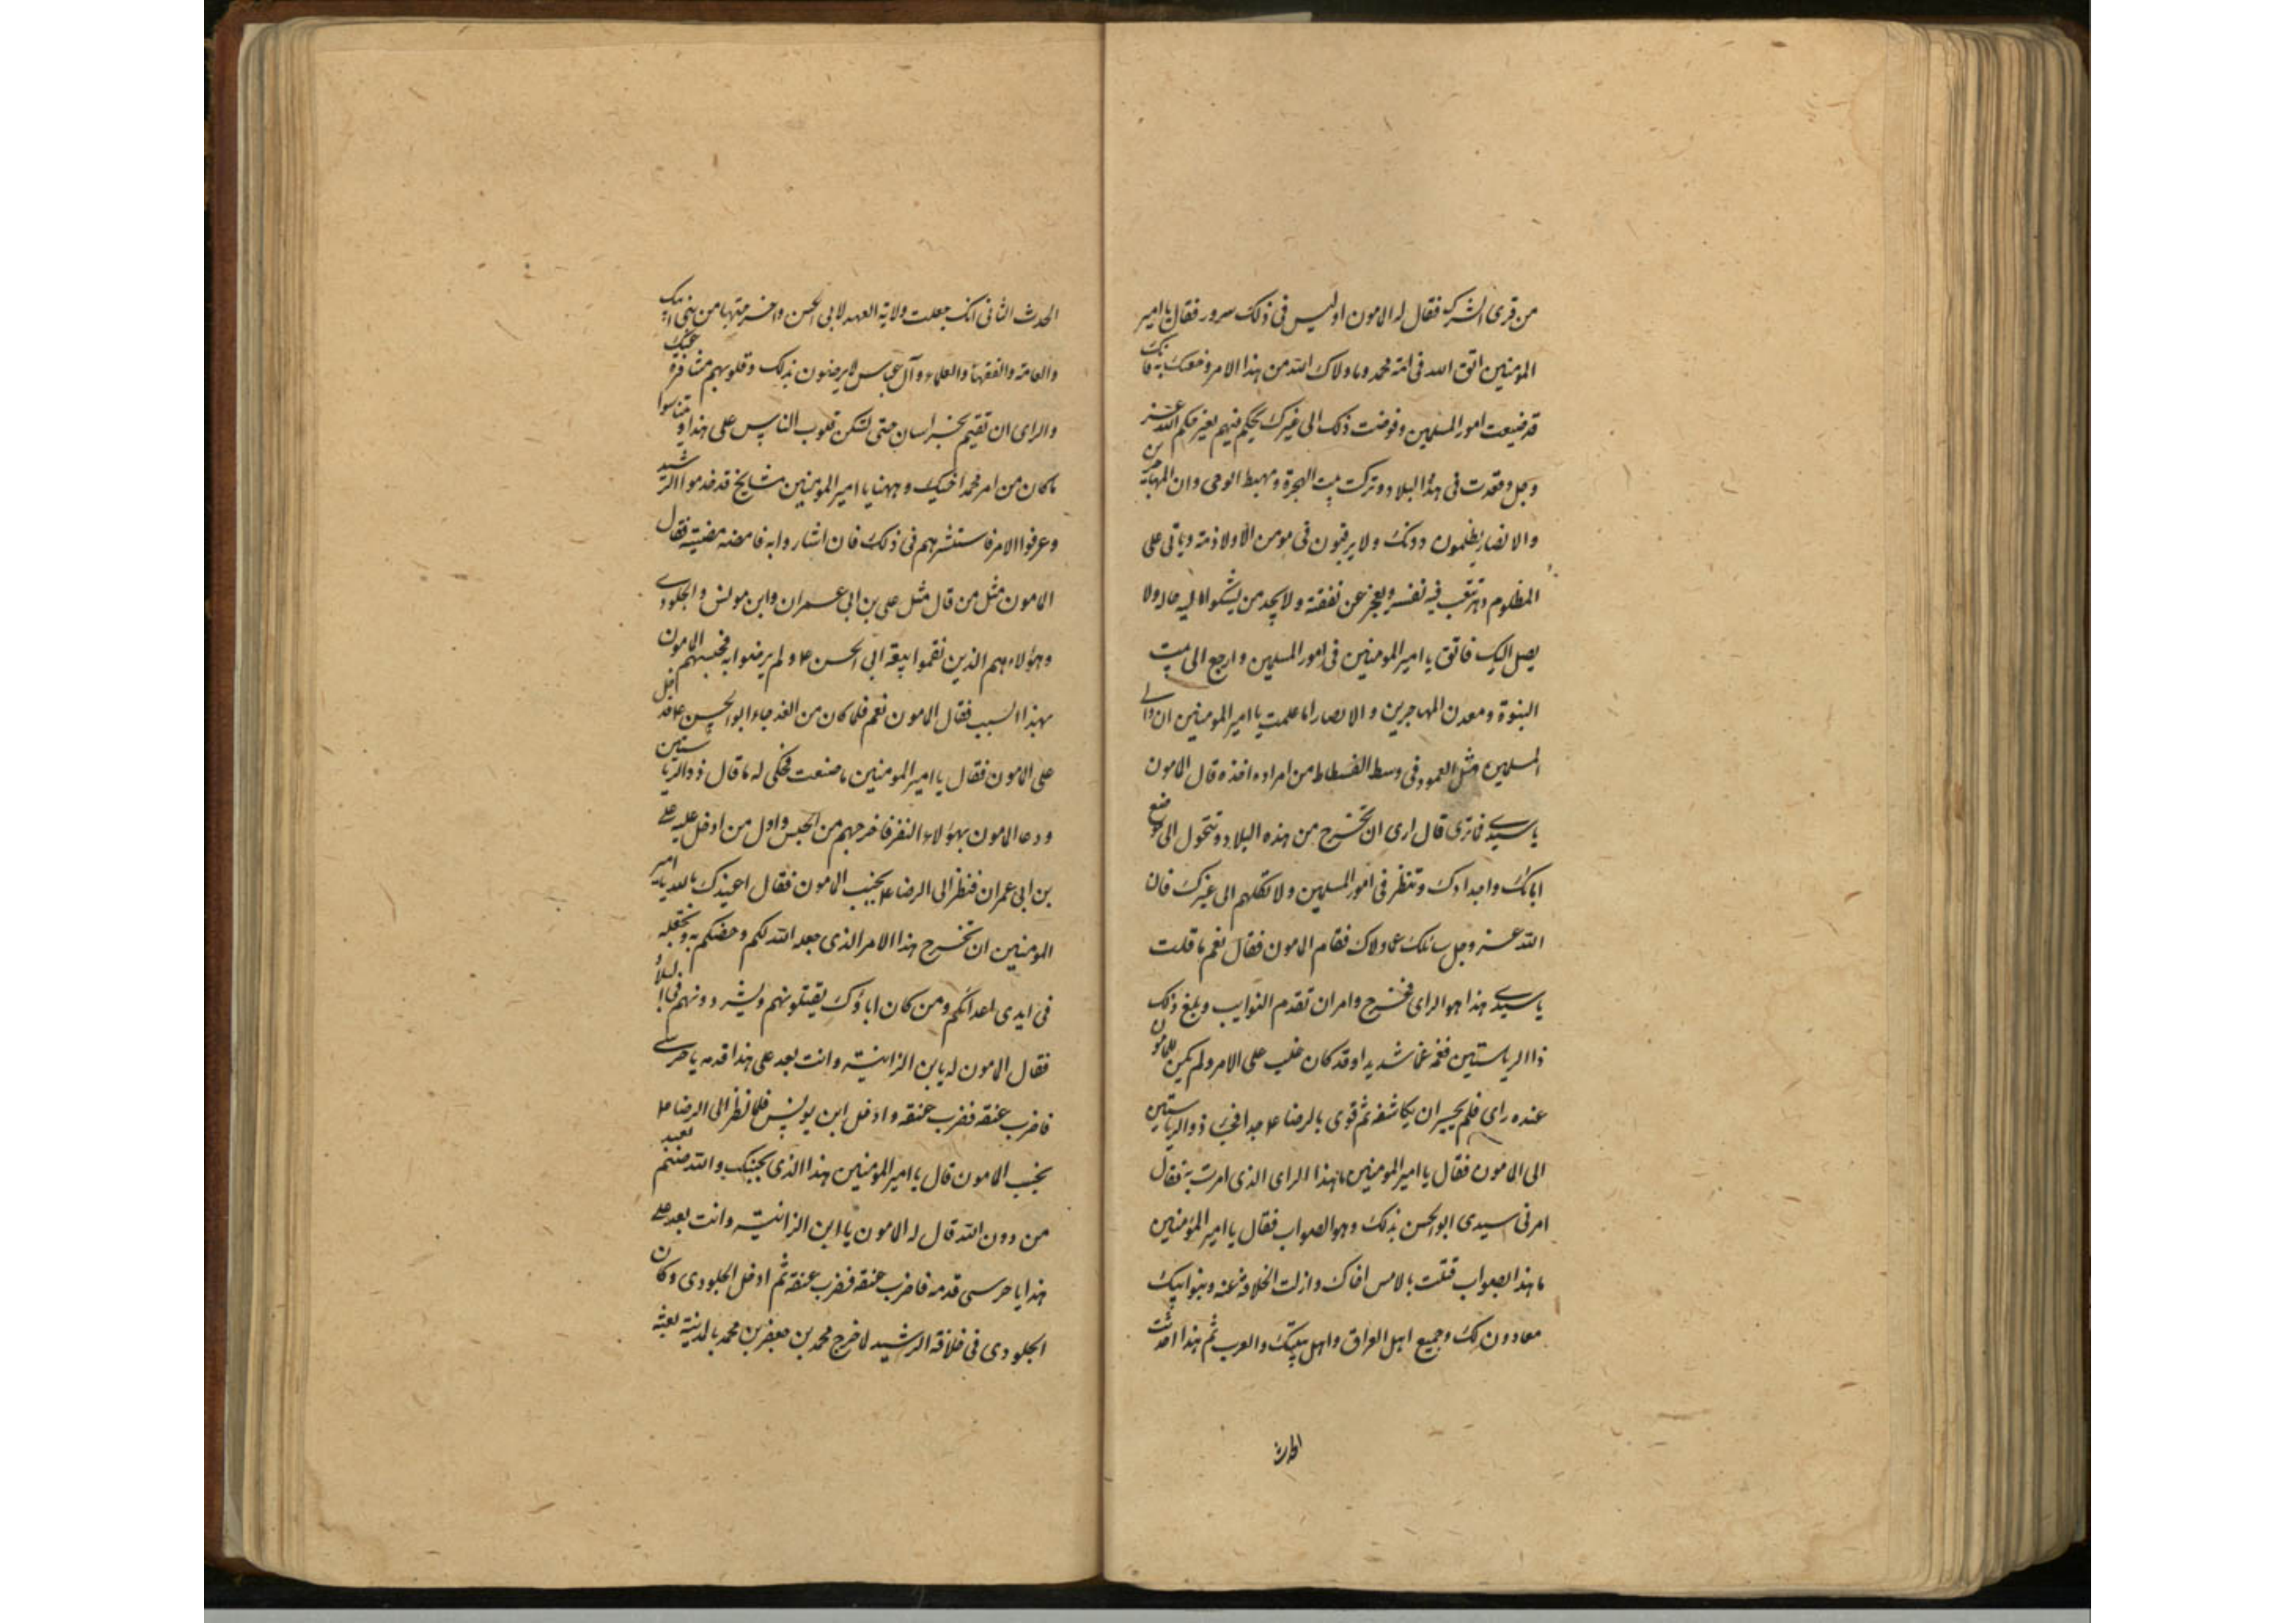 من قرى الشرك فقال له المامون اوليس فى ذلك سرور فقال يا امير
المومنين اتق الله فى امة محمد وما ولاك الله من هذا الامر وخصك به فانك
قد ضيعت امور المسلمين وفوضت ذلك الى غيرك يحكم فيهم بغير حكم الله عز
وجل وقعدت فى هذا البلاد وتركت بيت الهجرة ومهبط الوحى وان المهاجرين
والانصار يظلمون دونك ولا يرقبون فى مومن الا ولا ذمة وياتى على
المظلوم دهر يتعب فيه نفسه ويعجز عن نفقته ولا يجد من يشكوا اليه حاله ولا
يصل اليك فاتق يا امير المومنين فى امور المسلمين وارجع الى بيت
النبوة ومعدن المهاجرين والانصار اما علمت يا امير المومنين ان والى
المسلمين مثل العمود فى وسط الفسطاط من اراده اخذه قال المامون
يا سيدى فما ترى قال ارى ان تخرج من هذه البلاد وتتحول الى موضع
ابائك واجدادك وتنظر فى امور المسلمين ولا تكلهم الى غيرك فان
الله عز وجل سائلك عما ولاك فقام المامون فقال نعم ما قلت
يا سيدى هذا هو الراى فخرج وامر ان تقدم النوايب وبلغ ذلك
ذا الرياستين فغمه غما شديدا وقد كان غلب على الامر ولم يكن للمامون
عنده راى فلم يجسر ان يكاشفه ثم قوى بالرضا ع جدا فجئ ذو الرياستين
الى المامون فقال يا امير المومنين ما هذا الراى الذى امرت به فقال
امرنى سيدى ابو الحسن بذلك وهو الصواب فقال يا امير المؤمنين
ما هذا الصواب قتلت بالامس اخاك وازلت الخلافة عنه وبنوا ابيك
معادون لك وجميع اهل العراق واهل بيتك والعرب ثم هذا احدثت
الحدث
الحدث الثانى انك جعلت ولاية العهد لابى الحسن واخرجتها من بنى ابيك
والعامة والفقهاء والعلماء وآل عباس لا يرضون بذلك وقلوبهم متنافرة عنك
والراى ان تقيم بخراسان حتى تسكن قلوب الناس على هذا ويتناسوا
ما كان من امر محمد اخيك وههنا يا امير المومنين مشايخ قد خدموا الرشيد
وعرفوا الامر فاستشرهم فى ذلك فان اشاروا به فامضه فقال
المامون مثل من قال مثل على بن ابى عمران وابن مونس والجلودى
وهؤلاء هم الذين نقموا بيعة ابى الحسن ع ولم يرضوا به فحبسهم المامون
بهذا السبب فقال المامون نعم فلما كان من الغد جاء ابو الحسن ع فدخل
على المامون فقال يا امير المومنين ما صنعت فحكى له ما قال ذو الرياستين
ودعا المامون بهؤلاء النفر فاخرجهم من الحبس واول من ادخل عليه على
بن ابى عمران فنظر الى الرضا ع بجنب المامون فقال اعيذك بالله يا امير
المومنين ان تخرج هذا الامر الذى جعله الله لكم وخصكم به وتجعله
فى ايدى اعدائكم ومن كان اباؤك يقتلونهم ويشردونهم فى البلاد
فقال المامون له يا بن الزانية وانت بعد على هذا قدمه يا حرسى
فاضرب عنقه فضرب عنقه وادخل ابن يونس فلما نظر الى الرضا ع
بجنب المامون قال يا امير المومنين هذا الذى بجنبك والله صنم يعبد
من دون الله قال له المامون يا ابن الزانية وانت بعد على
هذا يا حرسى قدمه فاضرب عنقه فضرب عنقه ثم ادخل الجلودى وكان
الجلودى فى خلافة الرشيد لما خرج محمد بن جعفر بن محمد بالمدينة بعثه